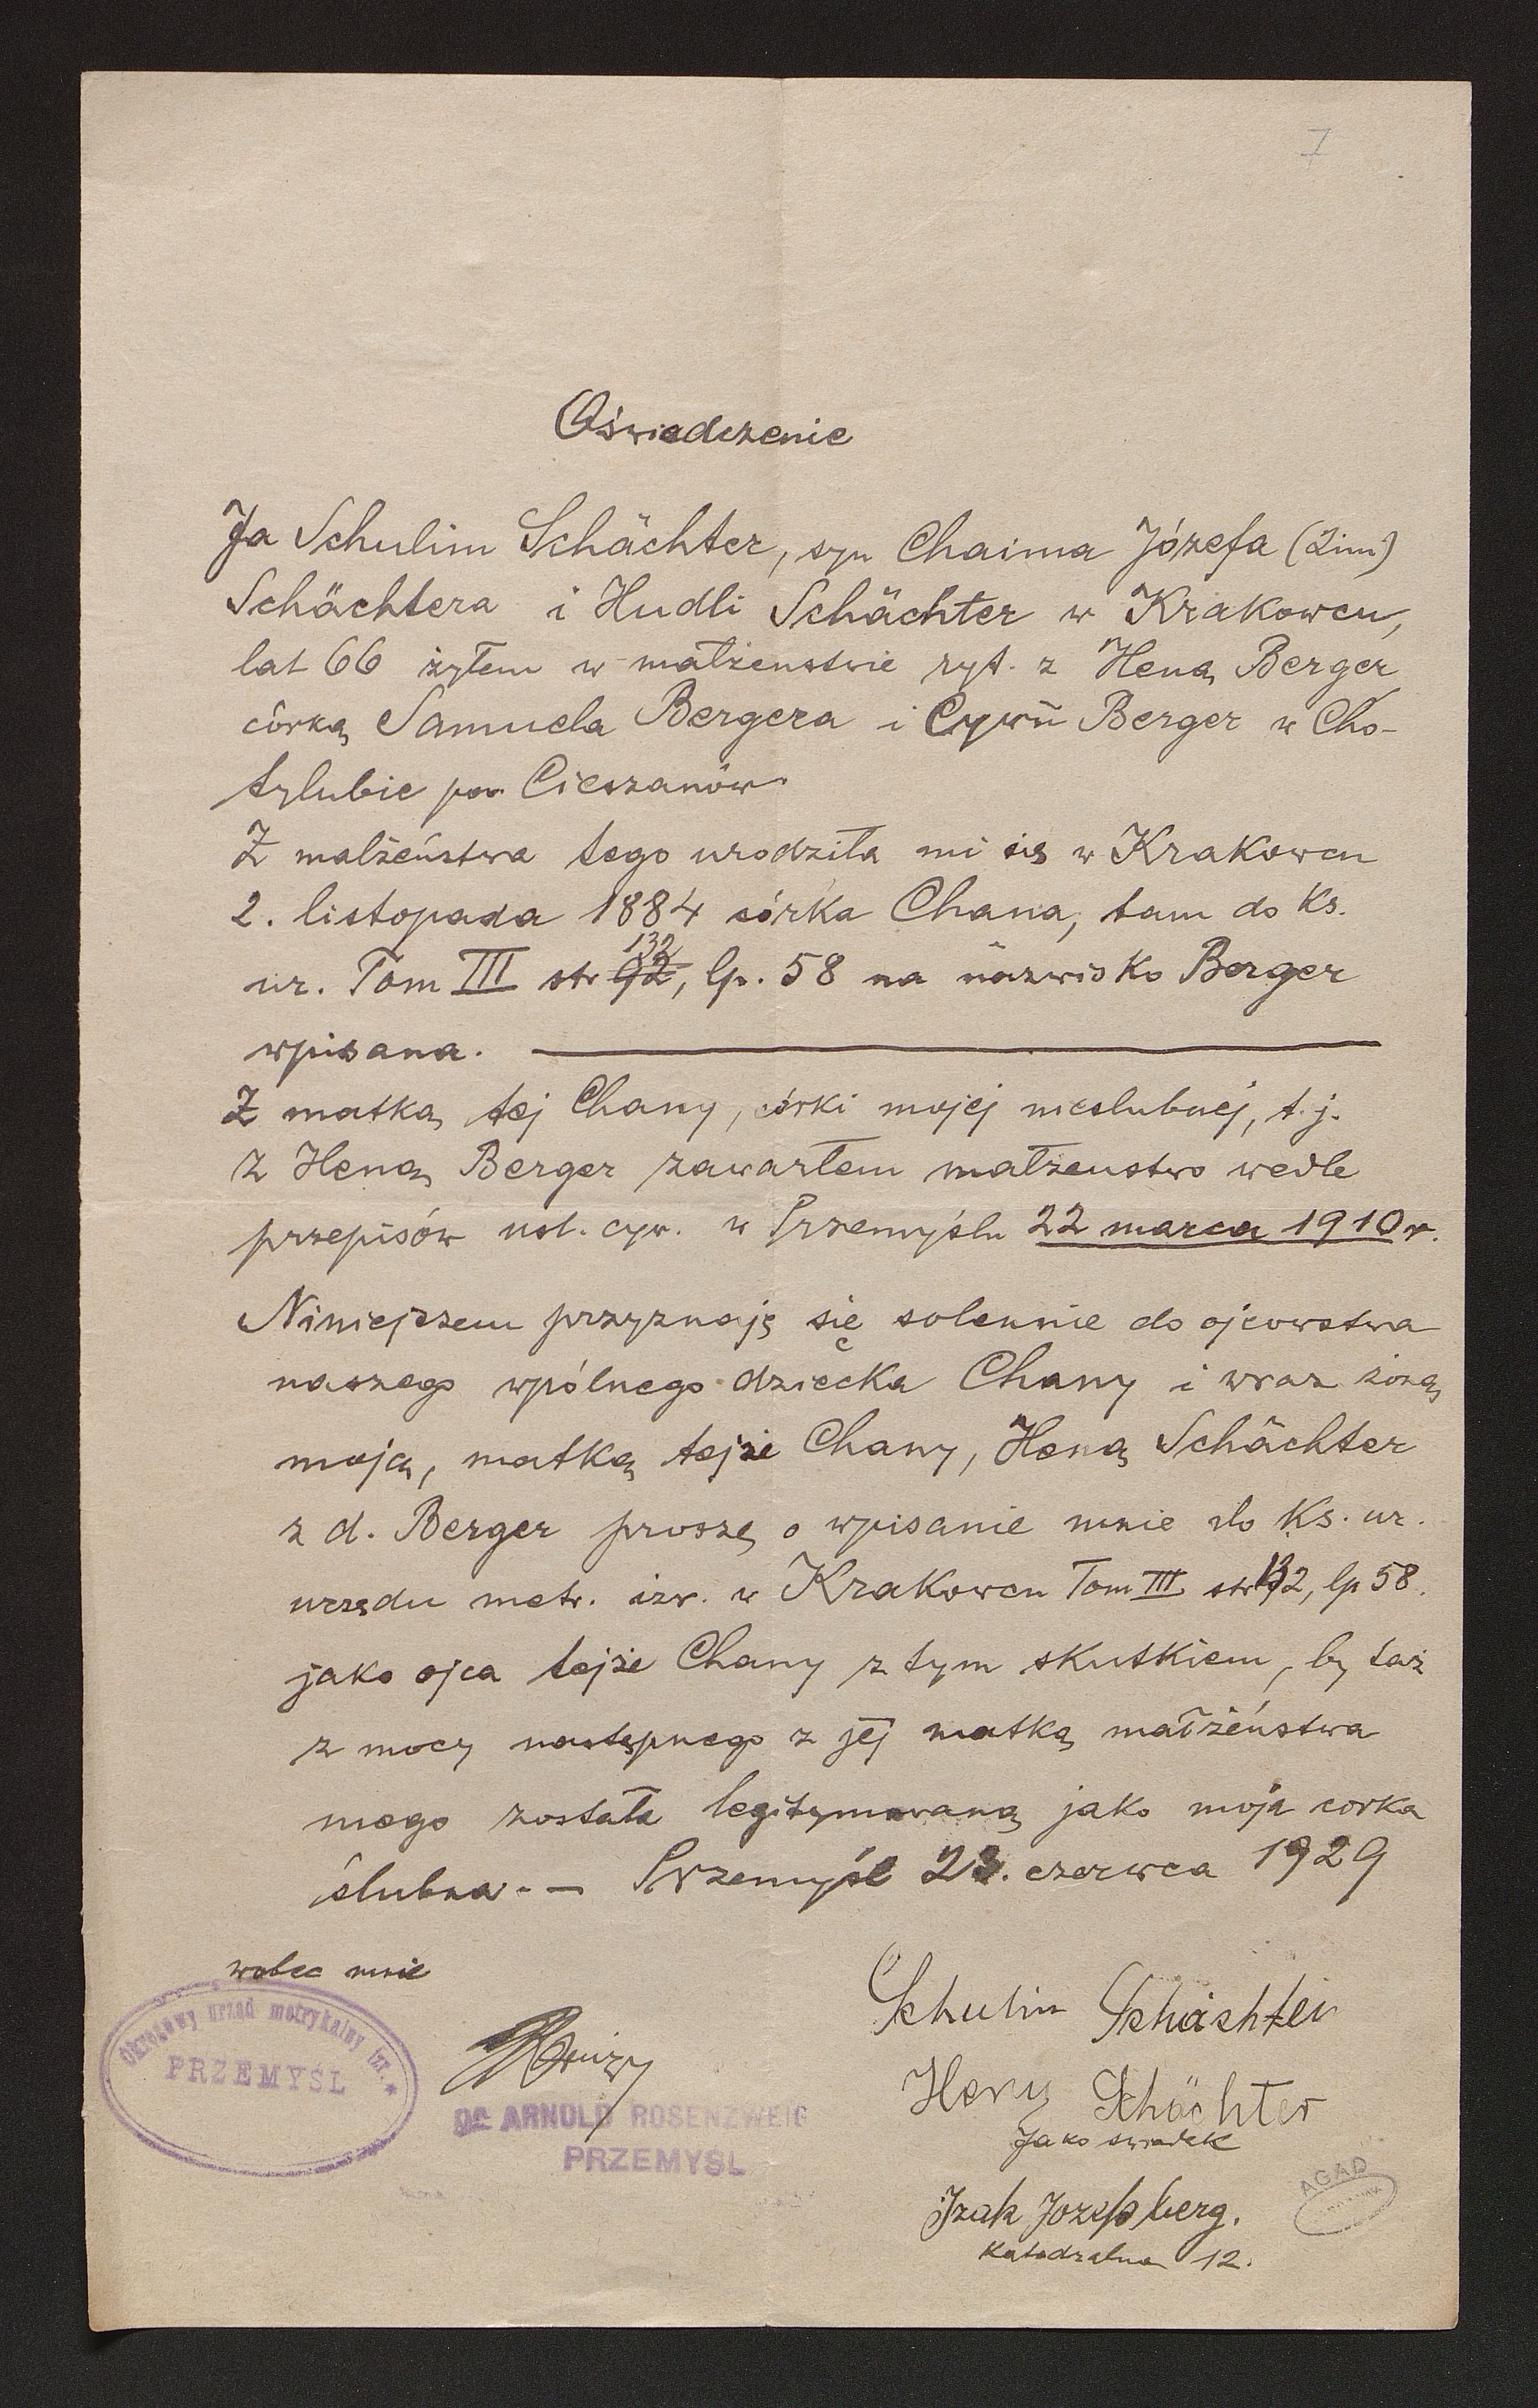 7
Oświadczenie
Ja Schulim Schächter, syn Chaima Józefa (2im)
Schächtera i Hudli Schächter w Krakowcu,
lat 66 żyłem w małżenstwie ryt. z Heną Berger
córką Samuela Bergera i Cywii Berger w Cho-
tylubie pow Cieszanów.
Z małżeństwa tego urodziła mi się w Krakowcu
2. listopada 1884 córka Chana, tam do Ks.
132
ur. Tom III str 92, lp. 58 na nazwisko Berger
wpisana.
Z matką tej Chany, córki mojej nieslubnej, t.j.
z Heną Berger zawarłem małzenstwo wedle
przepisów ust. cyw. w Przemyślu 22 marca 1910 r.
Niniejszem przyznaję się solennie do ojcowstwa
naszego wpólnego dziecka Chany i wraz żoną
moją, matką tejże Chany, Heną Schächter
z d. Berger proszę o wpisanie mnie do Ks. ur.
urzędu metr. izr. w Krakowcu Tom III str 132, lp 58.
jako ojca tejże Chany z tym skutkiem, by taż
z mocy następnego z jej matką małżeństwa
mego została legitymowaną jako moja corka
ślubna. — Przemyśl 23. czerwca 1929
wobec mnie
Okręgowy urząd metrykalny izr. *
PRZEMYŚL
Dr. ARNOLD ROSENZWEIG
PRZEMYŚL
Schulim Schächter
Heny Schächter
Jako swiadek
Izak Jozefsberg.
Katedralna 12.
AGAD